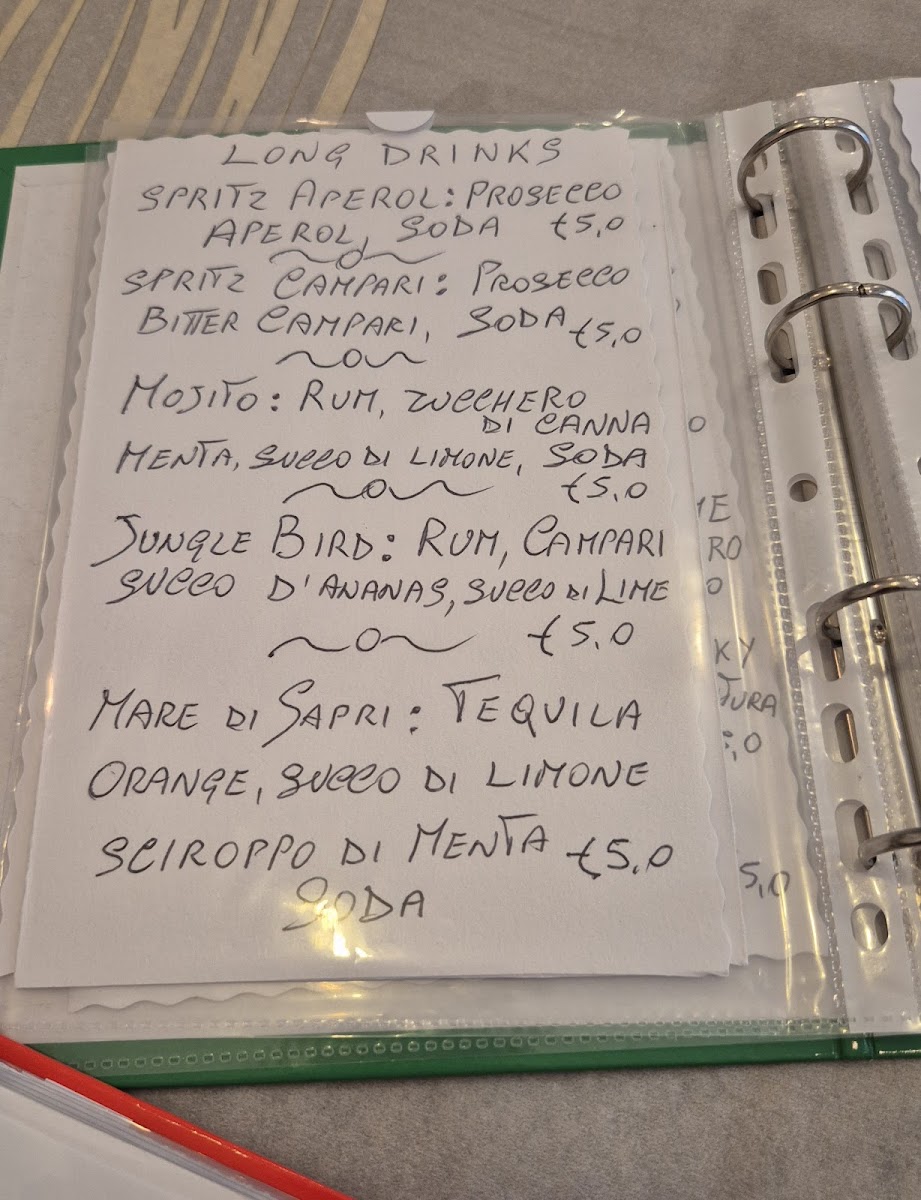 LONG DRINKS
SPRITZ APEROL: PROSECCO
APEROL, SODA €5,0
SPRITZ CAMPARI: PROSECCO
BITTER CAMPARI, SODA €5,0
MOJITO: RUM, ZUCCHERO
DI CANNA
MENTA, SUCCO DI LIMONE, SODA
€5,0
JUNGLE BIRD: RUM, CAMPARI
SUCCO D'ANANAS, SUCCO DI LIME
€5,0
MARE DI SAPRI: TEQUILA
ORANGE, SUCCO DI LIMONE
SCIROPPO DI MENTA €5,0
SODA
5,0